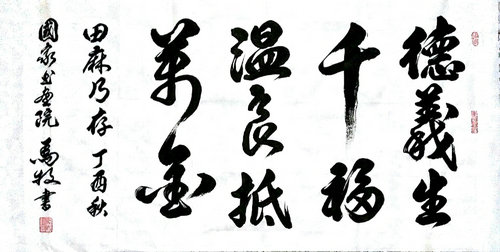 德義生
千福
温良抵
萬金
田麻乃存 丁酉秋
國家书画院 馬牧書